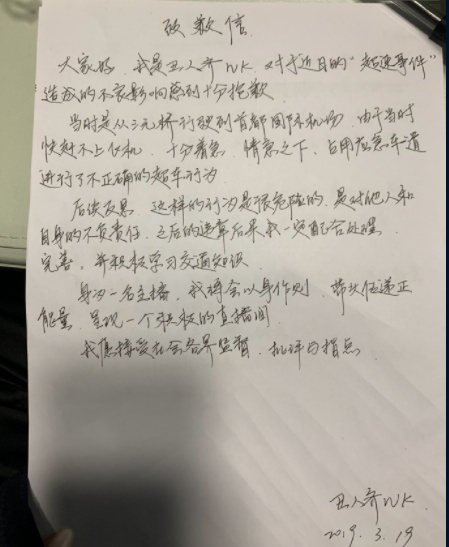 致歉信
大家好,我是丑人齐NK,对于近日的"超速事件"
造成的不良影响感到十分抱歉
当时是从三元桥行驶到首都国际机场,由于当时
快赶不上飞机,十分着急,情急之下,占用应急车道
进行了不正确的超车行为
后续反思,这样的行为是很危险的,是对他人和
自身的不负责任,之后的违章后果我一定配合处理
完善,并积极学习交通知识
身为一名主播,我将会以身作则,带头传递正
能量,呈现一个积极的直播间
我愿接受社会各界监督,批评与指点
丑人齐NK
2019.3.19